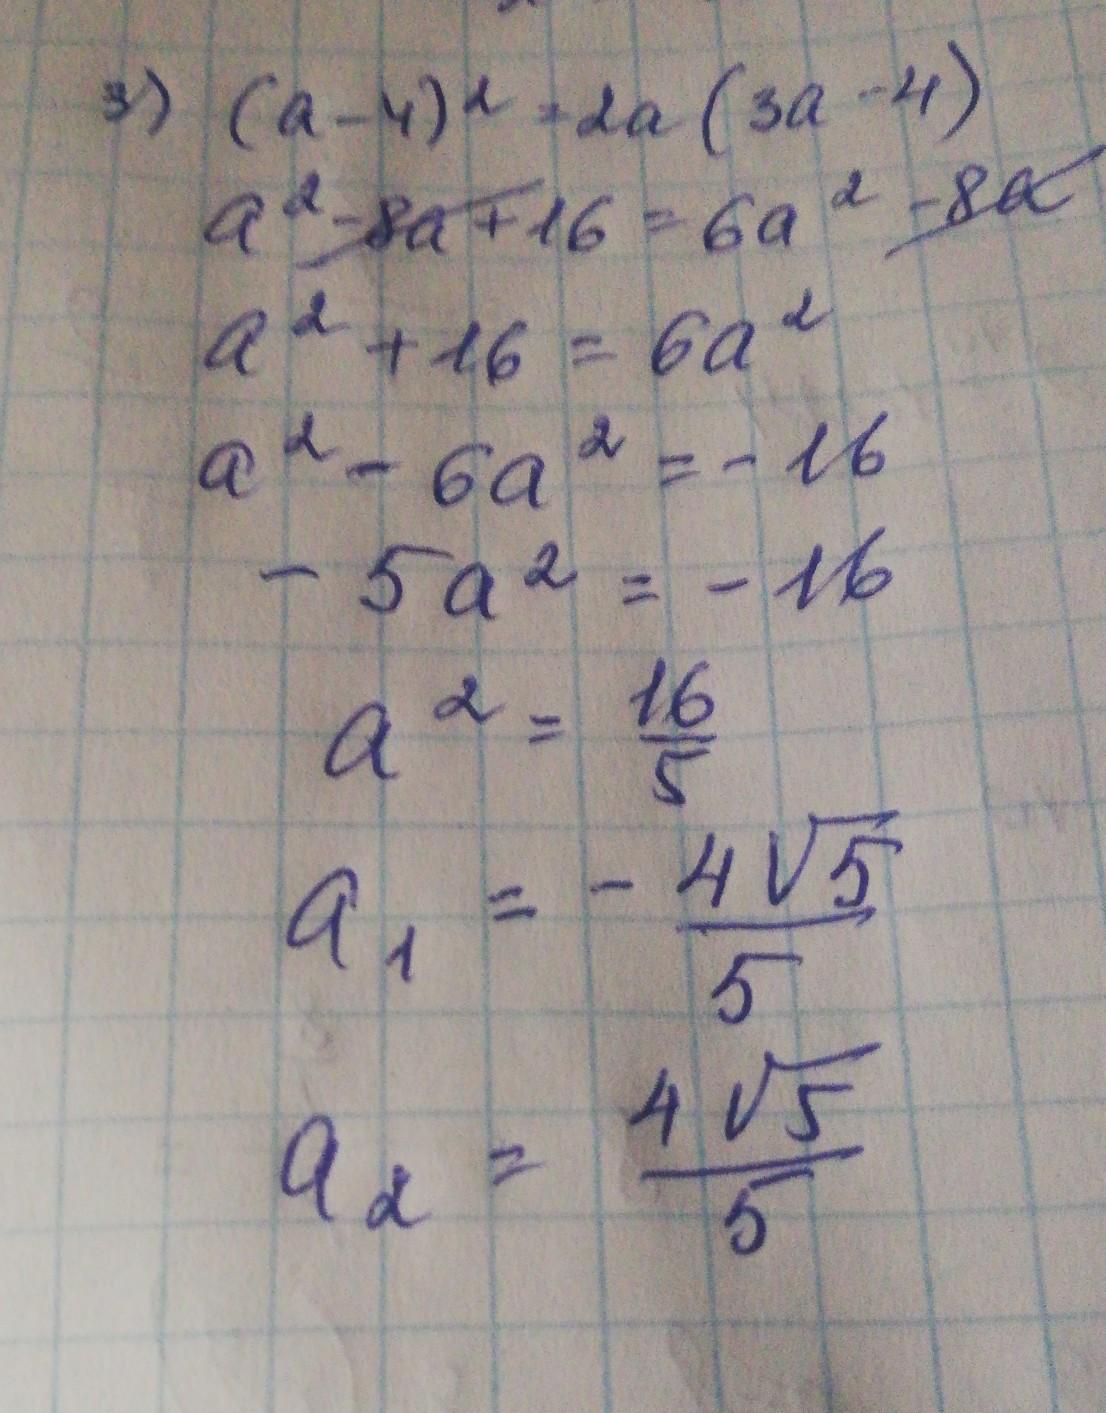 3) (a-4)² = 2a(3a-4)
a² - 8a + 16 = 6a² - 8a
a² + 16 = 6a²
a² - 6a² = -16
-5a² = -16
a² = 16/5
a₁ = - 4√5/5
a₂ = 4√5/5